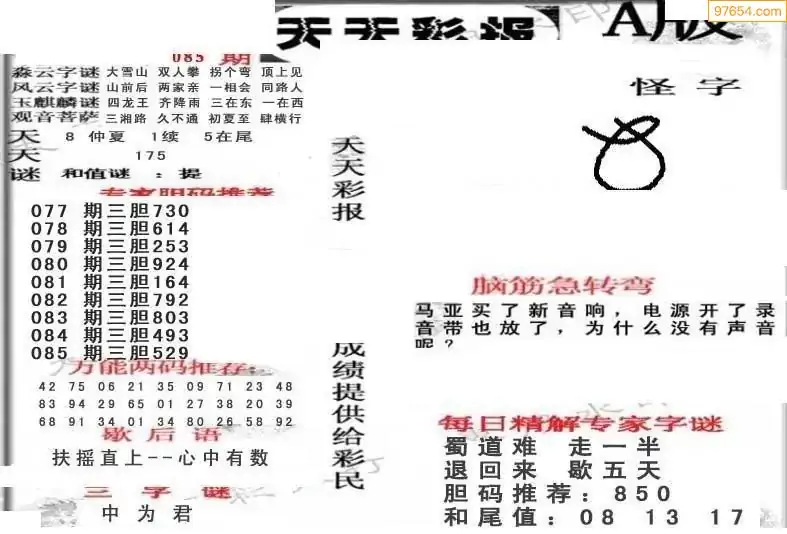 97654.com
天天彩报 A版
085 期
淼云字谜 大雪山 双人攀 拐个弯 顶上见
风云字谜 山前后 两家亲 一相会 同路人
玉麒麟谜 四龙王 齐降雨 三在东 一在西
观音菩萨 三湘路 久不通 初夏至 肆横行
天 8 仲夏 1续 5在尾
天 175
谜 和值谜 : 提
专家胆码推荐
077 期三胆730
078 期三胆614
079 期三胆253
080 期三胆924
081 期三胆164
082 期三胆792
083 期三胆803
084 期三胆493
085 期三胆529
万能两码推荐:
42 75 06 21 35 09 71 23 48
83 94 29 65 01 27 38 20 39
68 91 34 01 34 80 26 58 92
歇后语
扶摇直上--心中有数
三字谜
中为君
天天彩报
成绩提供给彩民
怪字
脑筋急转弯
马亚买了新音响，电源开了录
音带也放了，为什么没有声音
呢?
每日精解专家字谜
蜀道难 走一半
退回来 歇五天
胆码推荐：850
和尾值：08 13 17